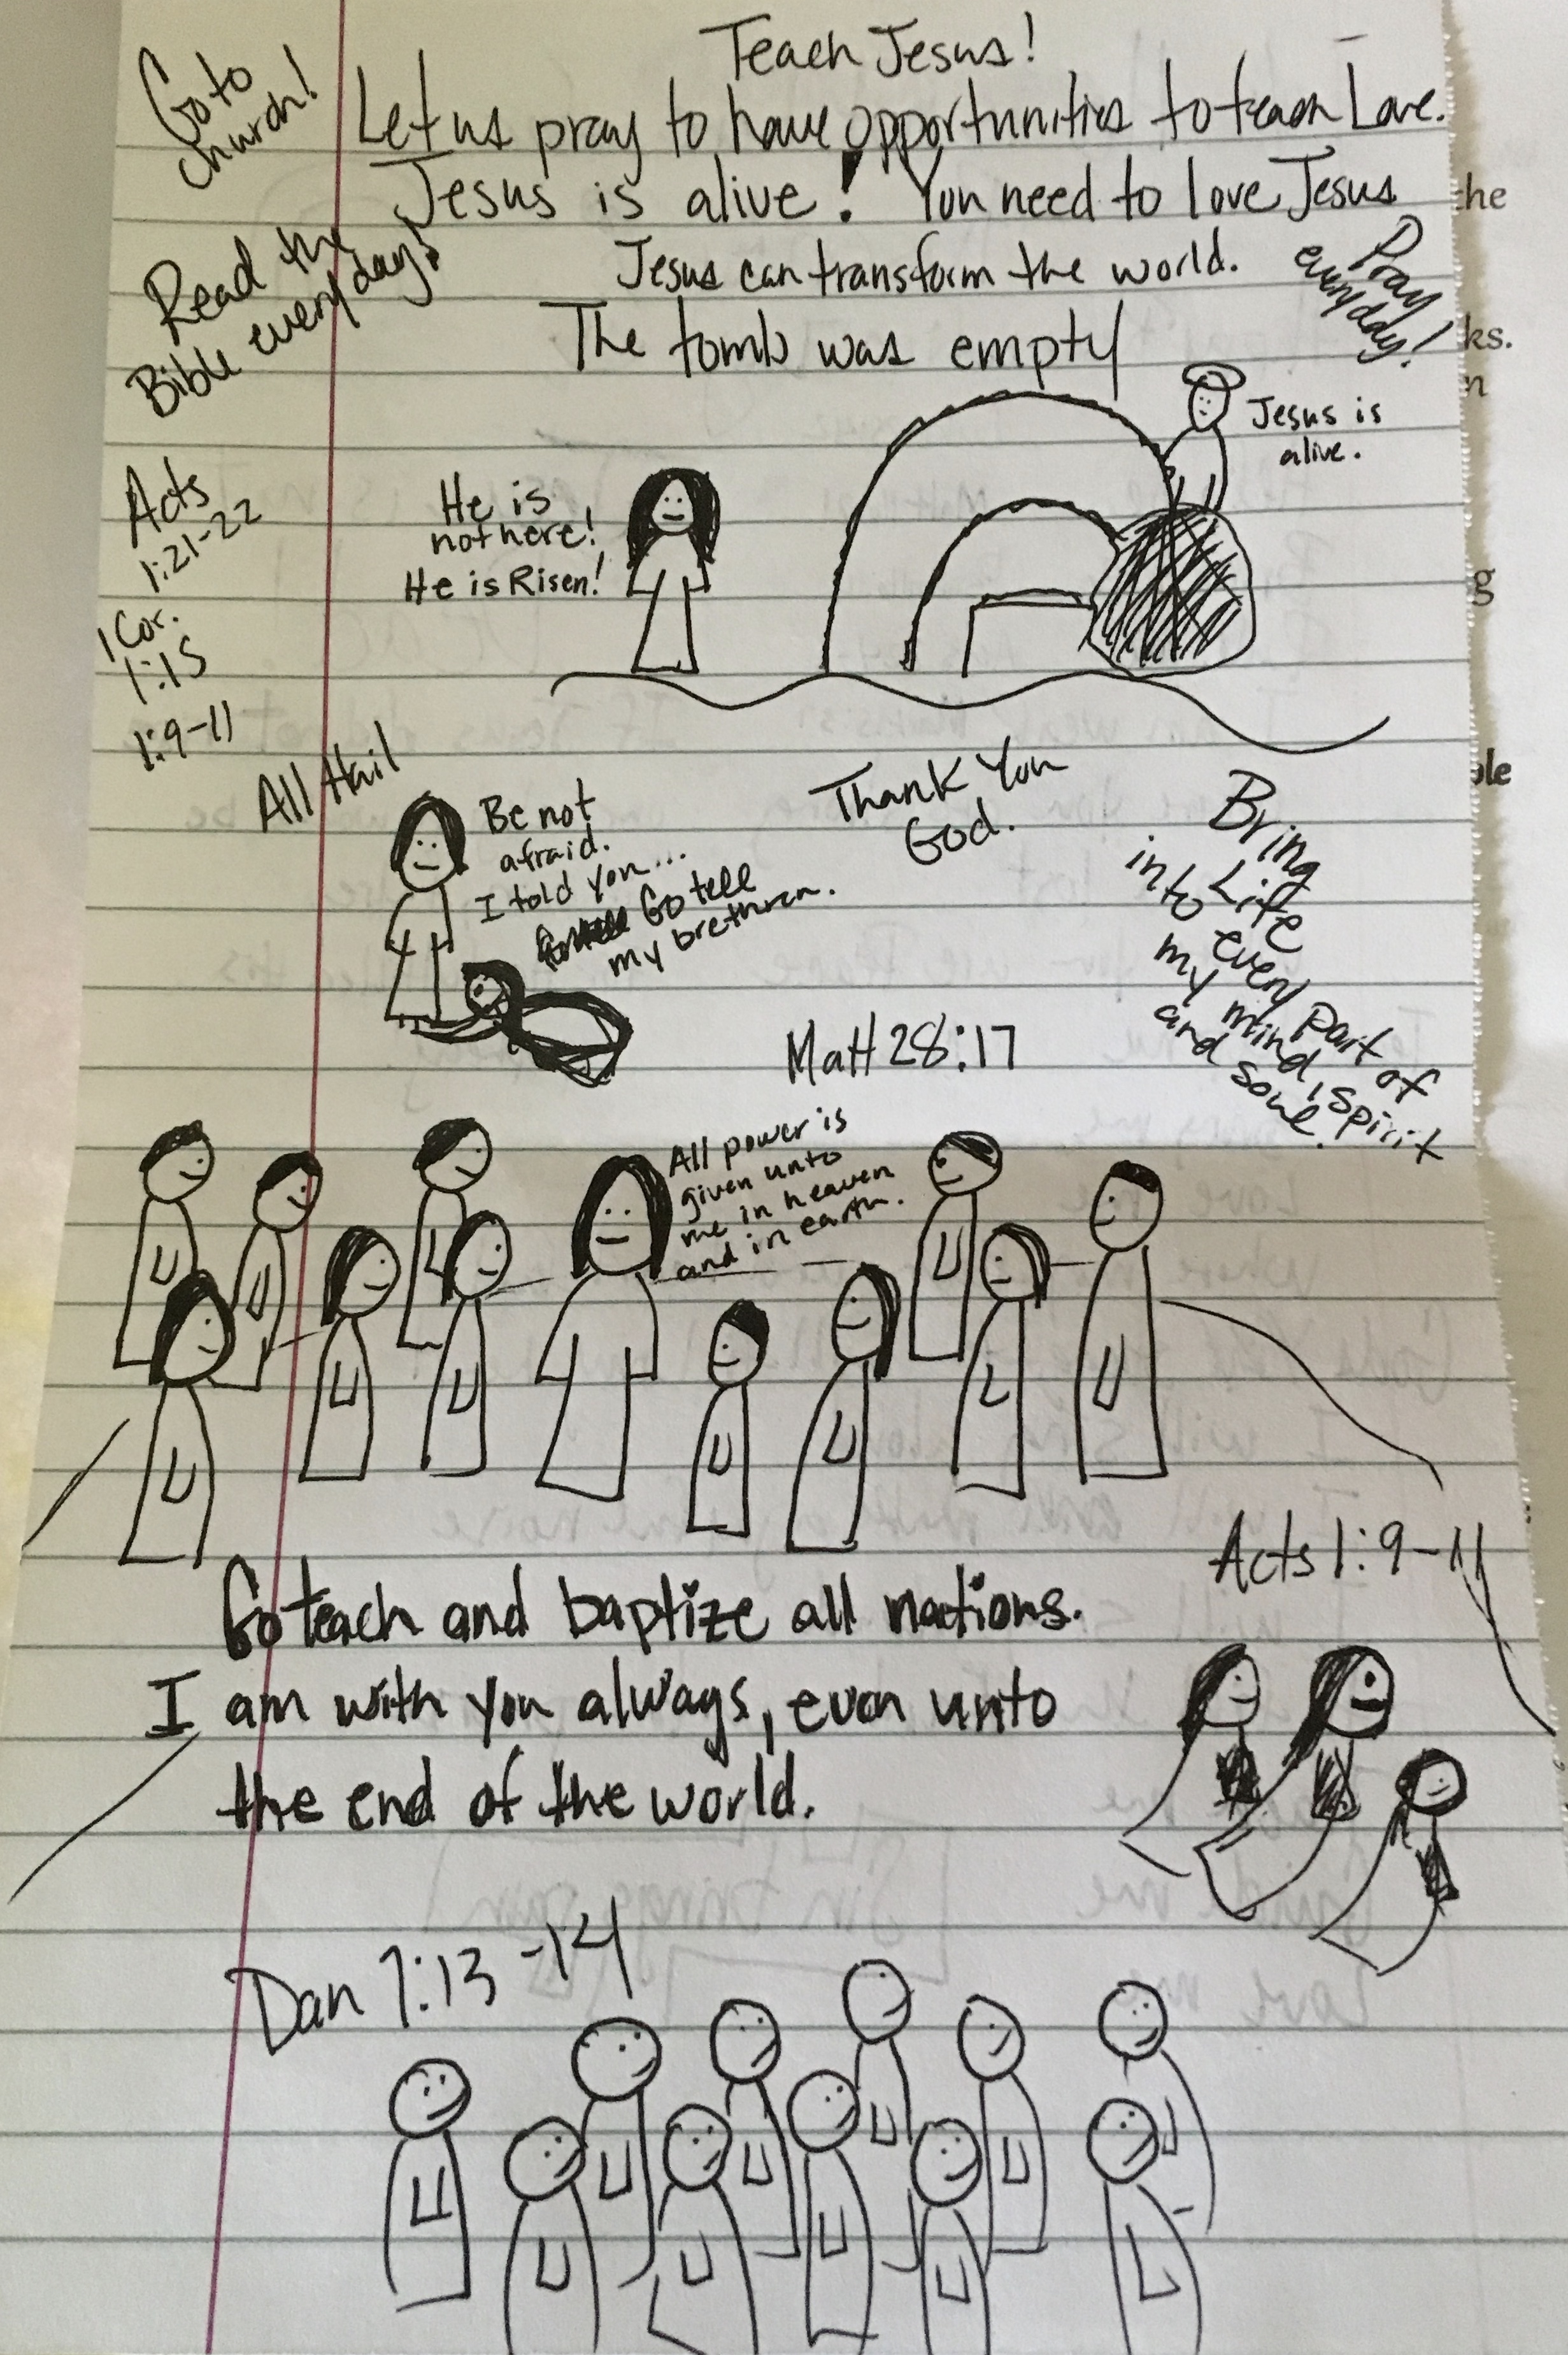 Teach Jesus!
Go to
church!
Let us pray to have opportunities to teach Love.
Jesus is alive! You need to love Jesus
Jesus can transform the world.
Read the
Bible everyday!
Pray
everyday!
The tomb was empty
Jesus is
alive.
He is
not here!
He is Risen!
Acts
1:21-22
1 Cor.
1:15
1:9-11
All Hail
Be not
afraid.
I told you...
Go tell
my brethren.
Thank You
God.
Bring
Life
into every part of
my mind, spirit
and soul.
Matt 28:17
All power is
given unto
me in heaven
and in earth.
Acts 1:9-11
Go teach and baptize all nations.
I am with you always, even unto
the end of the world.
Dan 7:13-14
the
ks.
n
g
ble